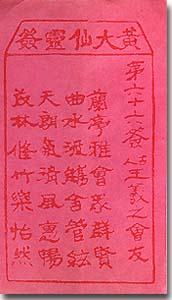 黃大仙靈簽
第六十六簽 王羲之會友
蘭亭雅會聚群賢
曲水流觴奏管絃
天朗氣清風惠暢
茂林修竹樂怡然